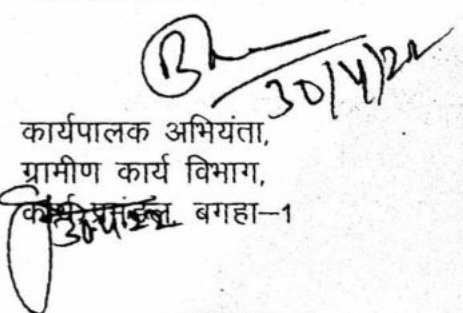 30/4/22
कार्यपालक अभियंता,
ग्रामीण कार्य विभाग,
कार्य प्रमंडल, बगहा-1
30.4.22